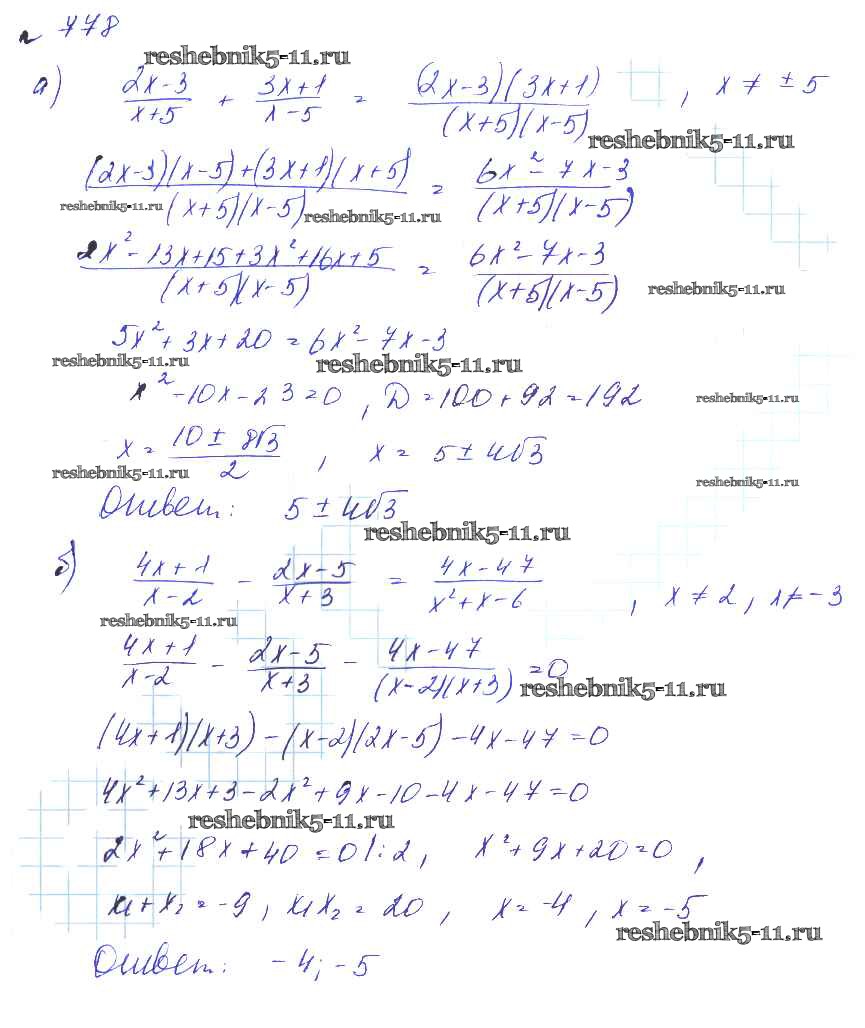 № 778
reshebnik5-11.ru
а) (2x-3)/(x+5) + (3x+1)/(x-5) = (2x-3)(3x+1)/((x+5)(x-5)) , x ≠ ±5
reshebnik5-11.ru
((2x-3)(x-5)+(3x+1)(x+5))/((x+5)(x-5)) = (6x²-7x-3)/((x+5)(x-5))
reshebnik5-11.ru reshebnik5-11.ru
(2x²-13x+15+3x²+16x+5)/((x+5)(x-5)) = (6x²-7x-3)/((x+5)(x-5))
reshebnik5-11.ru
5x²+3x+20=6x²-7x-3
reshebnik5-11.ru reshebnik5-11.ru
x²-10x-23=0, D=100+92=192
reshebnik5-11.ru
x= (10±8√3)/2 , x= 5±4√3
reshebnik5-11.ru
reshebnik5-11.ru
Ответ: 5±4√3
reshebnik5-11.ru
б) (4x+1)/(x-2) - (2x-5)/(x+3) = (4x-47)/(x²+x-6) , x≠2, x≠-3
reshebnik5-11.ru
(4x+1)/(x-2) - (2x-5)/(x+3) - (4x-47)/((x-2)(x+3)) =0
reshebnik5-11.ru
(4x+1)(x+3)-(x-2)(2x-5)-4x-47=0
4x²+13x+3-2x²+9x-10-4x-47=0
reshebnik5-11.ru
2x²+18x+40=0 |:2, x²+9x+20=0 ,
x₁+x₂=-9, x₁x₂=20, x=-4, x=-5
reshebnik5-11.ru
Ответ: -4; -5